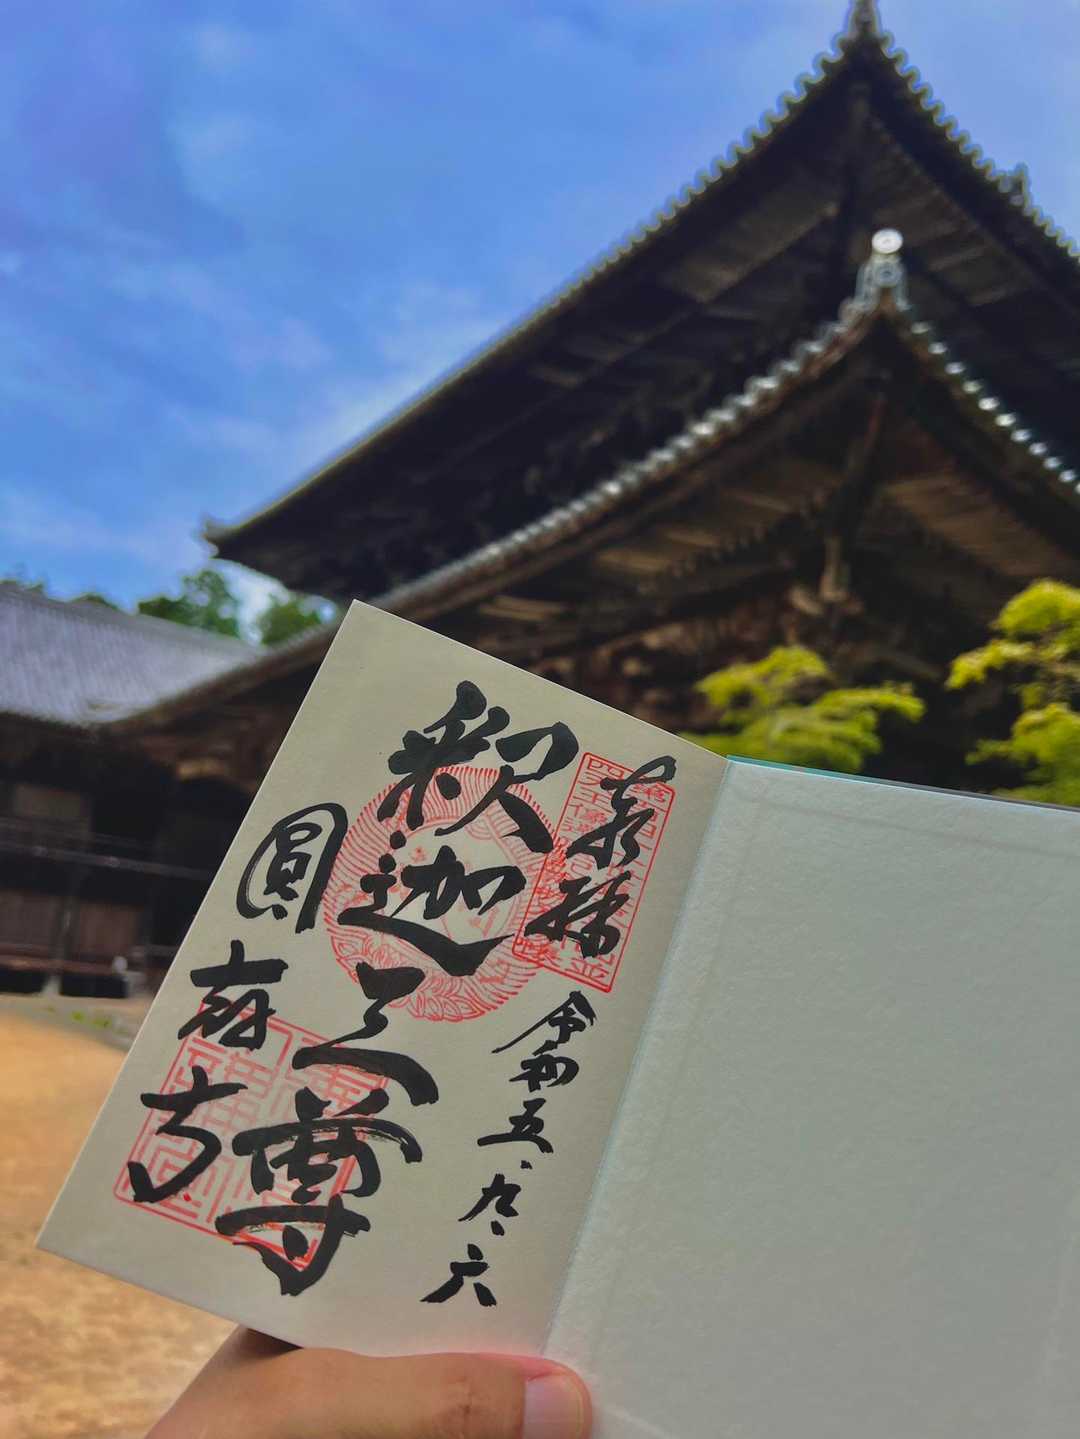 奉拝
令和五・九・六
釈迦三尊
圓教寺